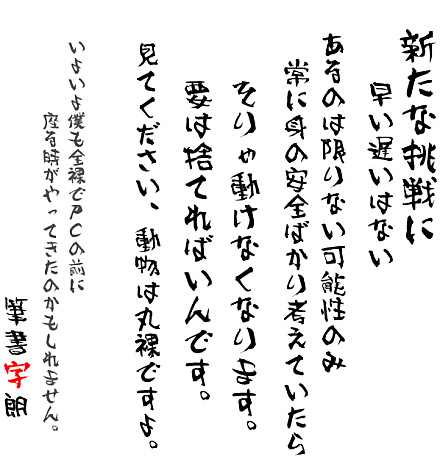 新たな挑戦に
早い遅いはない
あるのは限りない可能性のみ
常に身の安全ばかり考えていたら
そりゃ動けなくなります。
要は捨てればいんです。
見てください、動物は丸裸ですよ。
いよいよ僕も全裸でPCの前に
座る時がやってきたのかもしれません。
筆書字朗